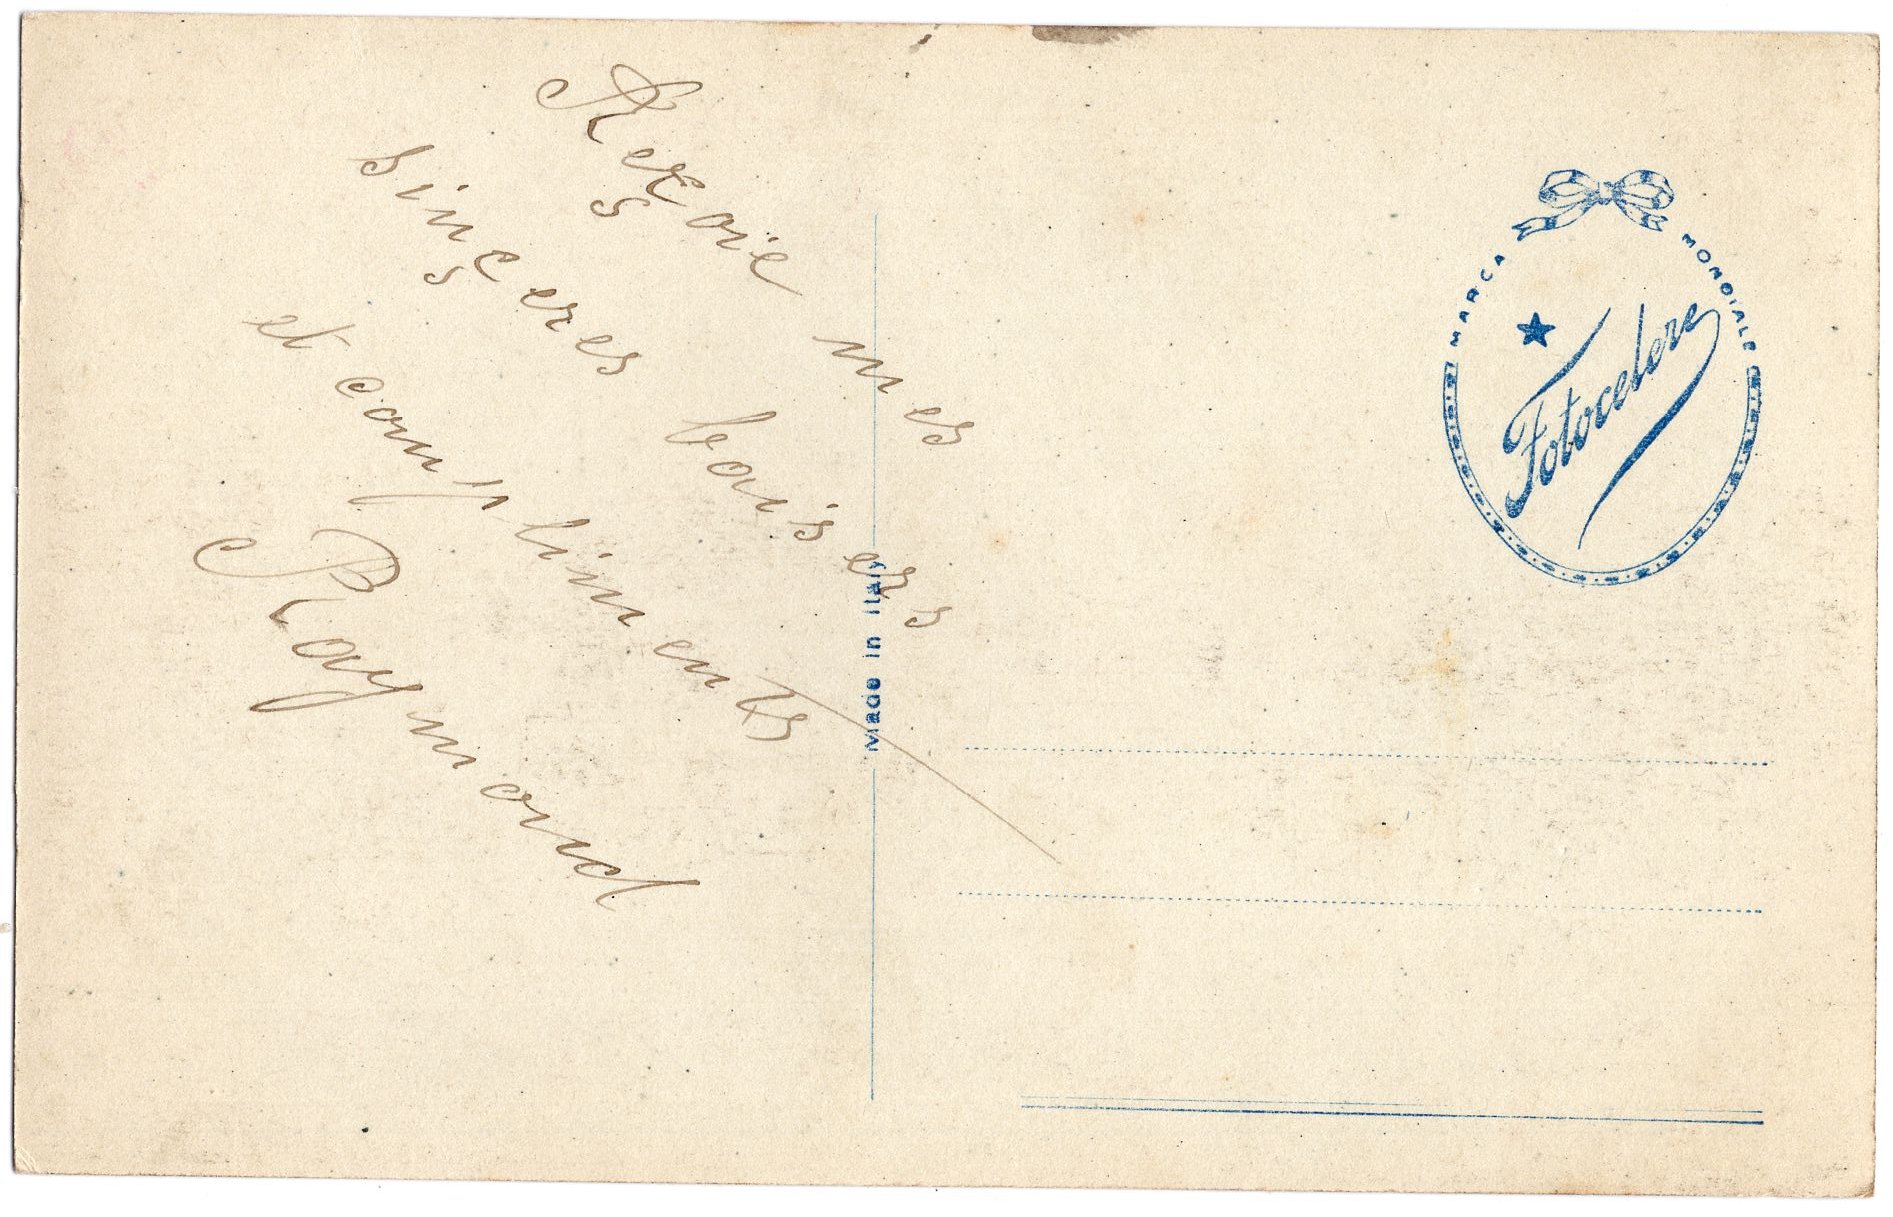 Reçoie mes
sinçeres baisers
et compliments
Raymond
Made in Italy
MARCA MONDIALE
Fotocelere